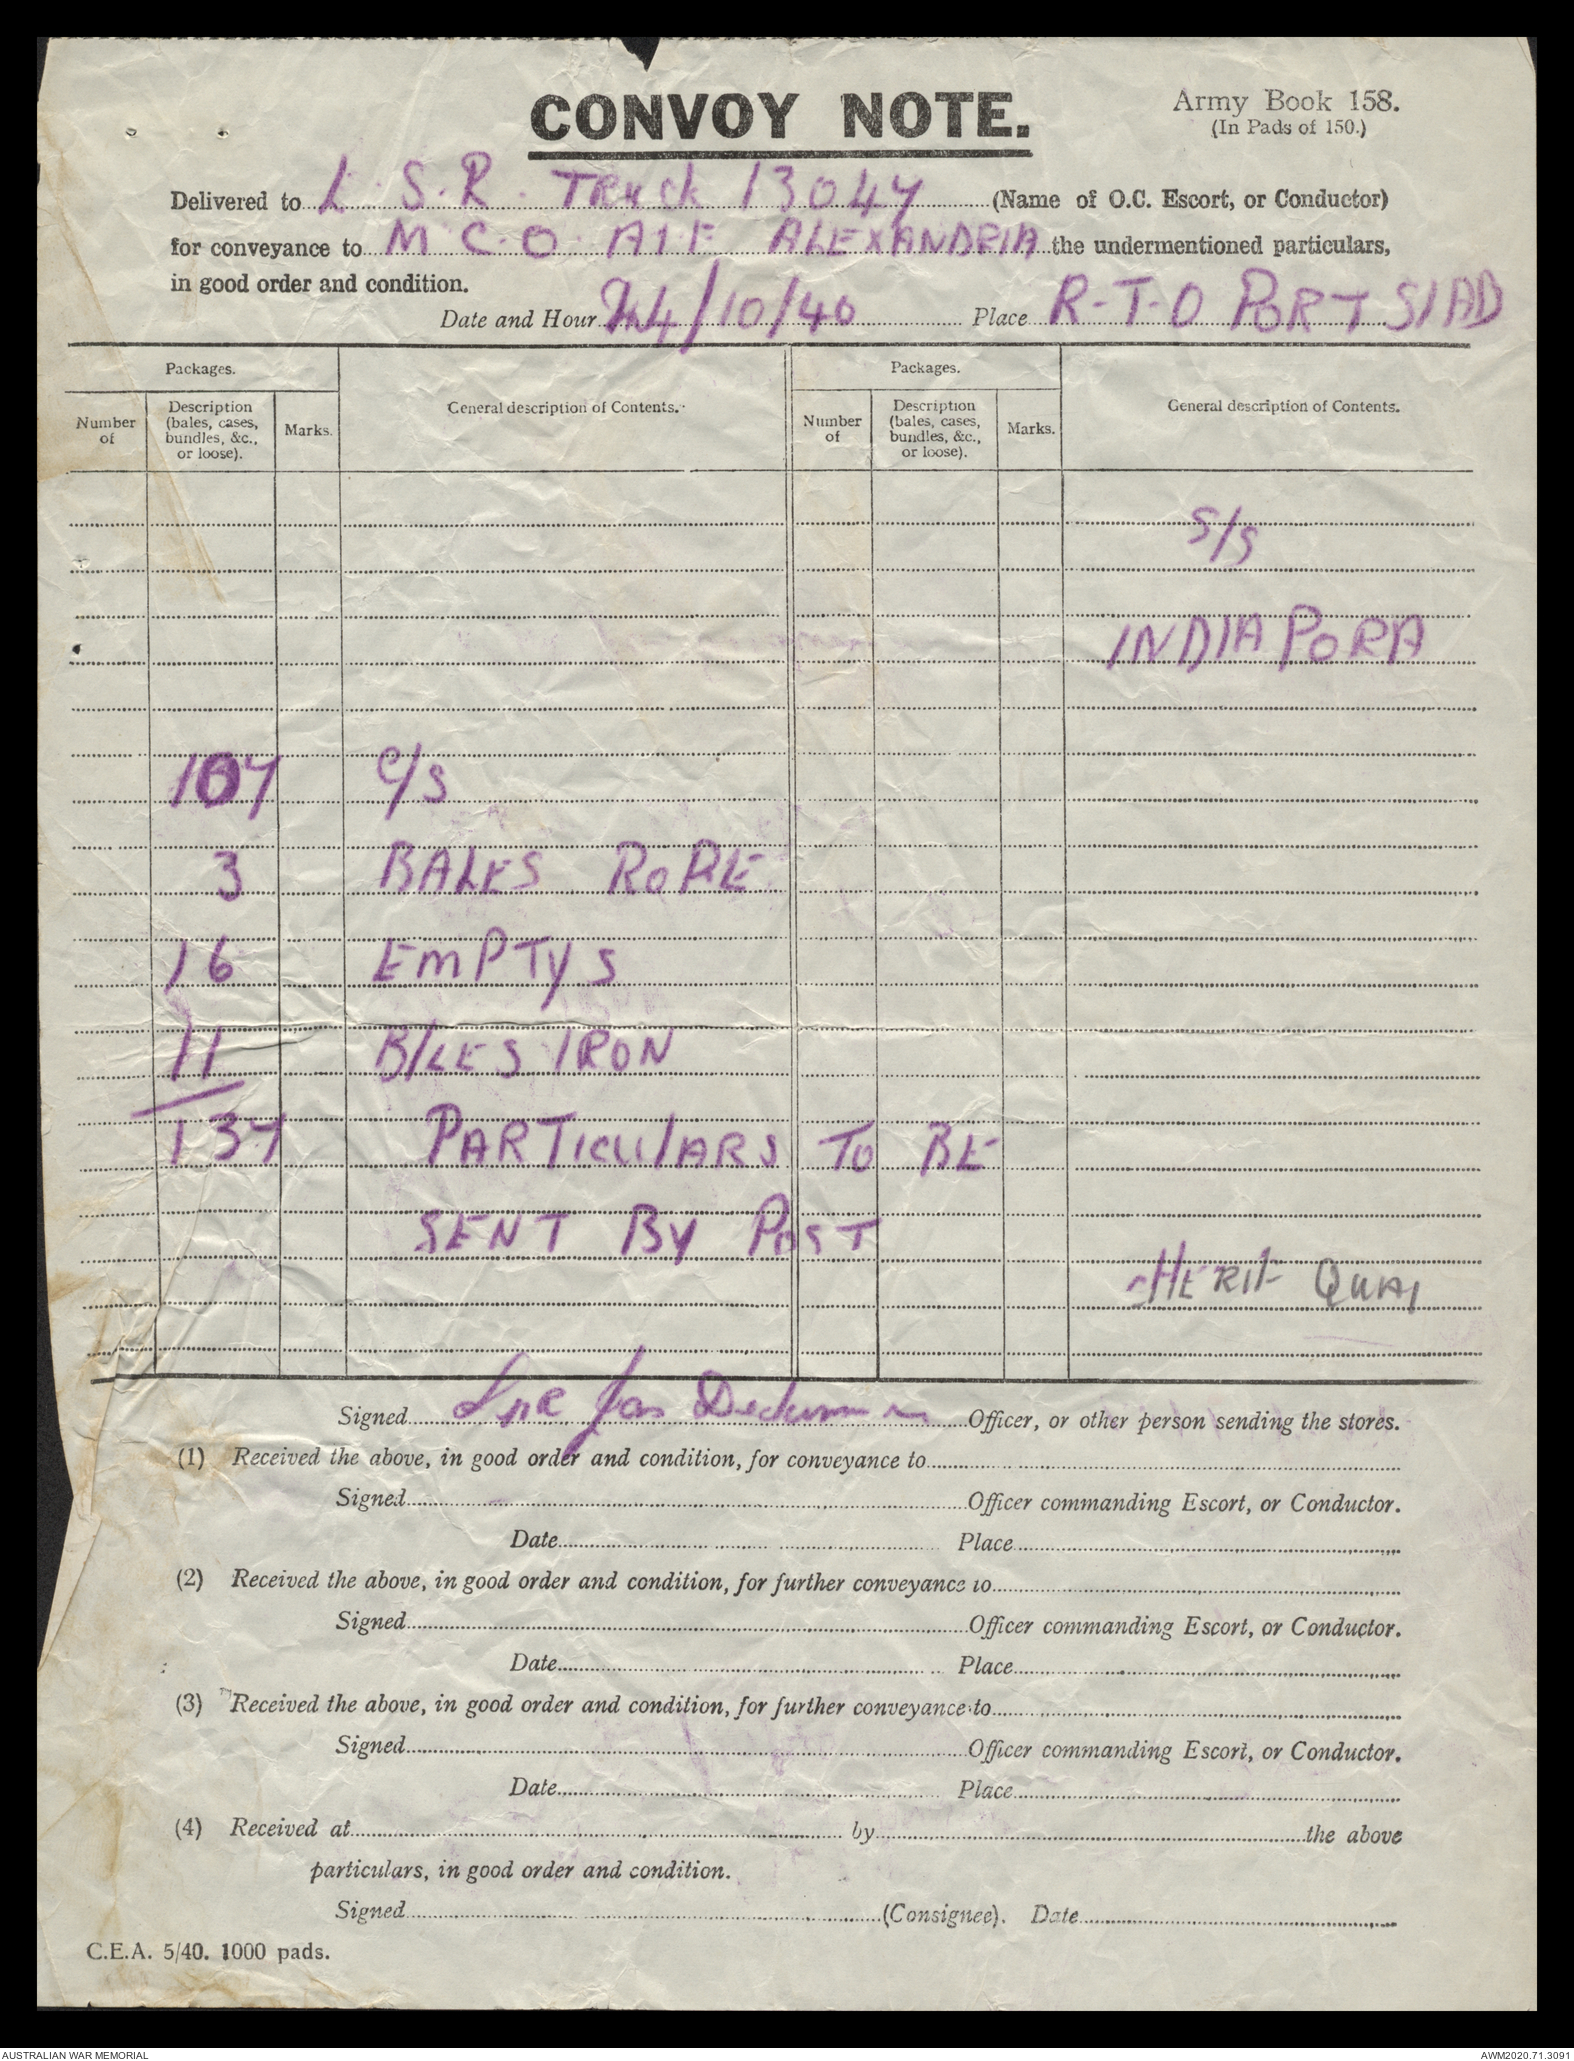 CONVOY NOTE.
Army Book 158.
(In Pads of 150.)
Delivered to L. S. R. Truck 13047 (Name of O.C. Escort, or Conductor)
for conveyance to M. C. O. A1F ALEXANDRIA the undermentioned particulars,
in good order and condition.
Date and Hour 24/10/40 Place R-T-O PORT SIAD
Packages. Packages.
Number of Description (bales, cases, bundles, &c., or loose). Marks. General description of Contents. Number of Description (bales, cases, bundles, &c., or loose). Marks. General description of Contents.
S/S
INDIA PORA
107 C/S
3 BALES ROPE
16 EMPTYS
11 B/LES IRON
137 PARTICULARS TO BE
SENT BY POST
QUAI
Signed Officer, or other person sending the stores.
(1) Received the above, in good order and condition, for conveyance to
Signed Officer commanding Escort, or Conductor.
Date Place
(2) Received the above, in good order and condition, for further conveyance to
Signed Officer commanding Escort, or Conductor.
Date Place
(3) Received the above, in good order and condition, for further conveyance to
Signed Officer commanding Escort, or Conductor.
Date Place
(4) Received at by the above
particulars, in good order and condition.
Signed (Consignee). Date
C.E.A. 5/40. 1000 pads.
AUSTRALIAN WAR MEMORIAL AWM2020.71.3091